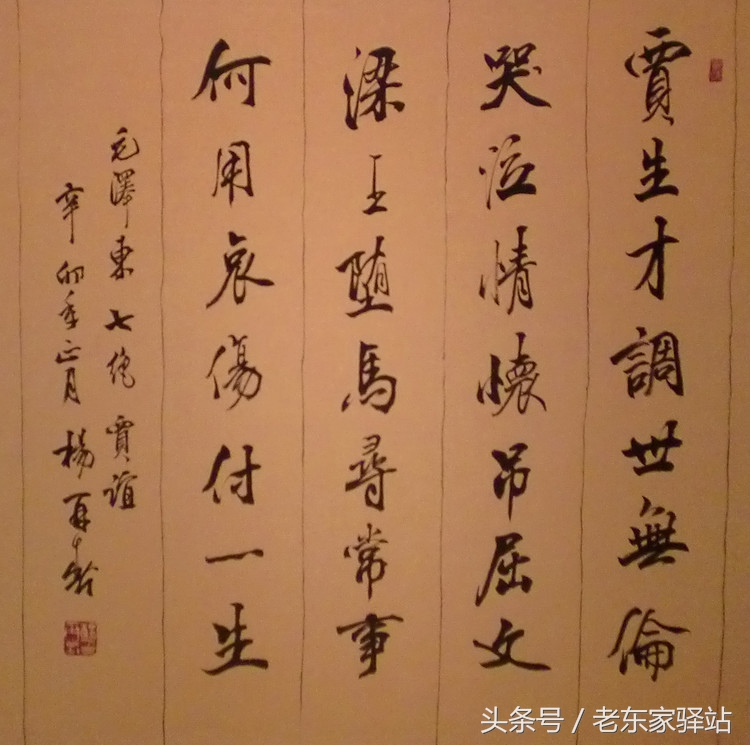 賈生才調世無倫
哭泣情懷吊屈文
梁王堕馬尋常事
何用哀傷付一生
毛澤東七絕賈誼
辛卯年正月楊再
头条号 / 老东家驿站